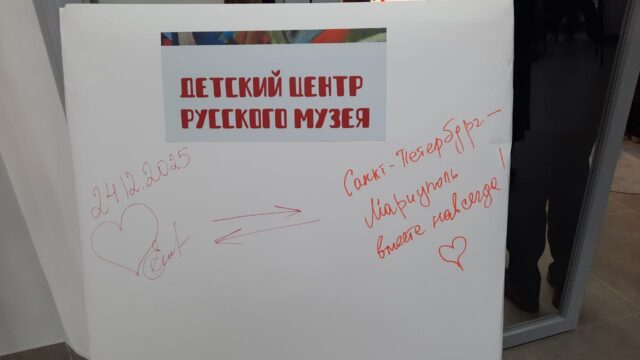 ДЕТСКИЙ ЦЕНТР
РУССКОГО МУЗЕЯ
24.12.2025
Санкт-Петербург-
Мариуполь
вместе навсегда!